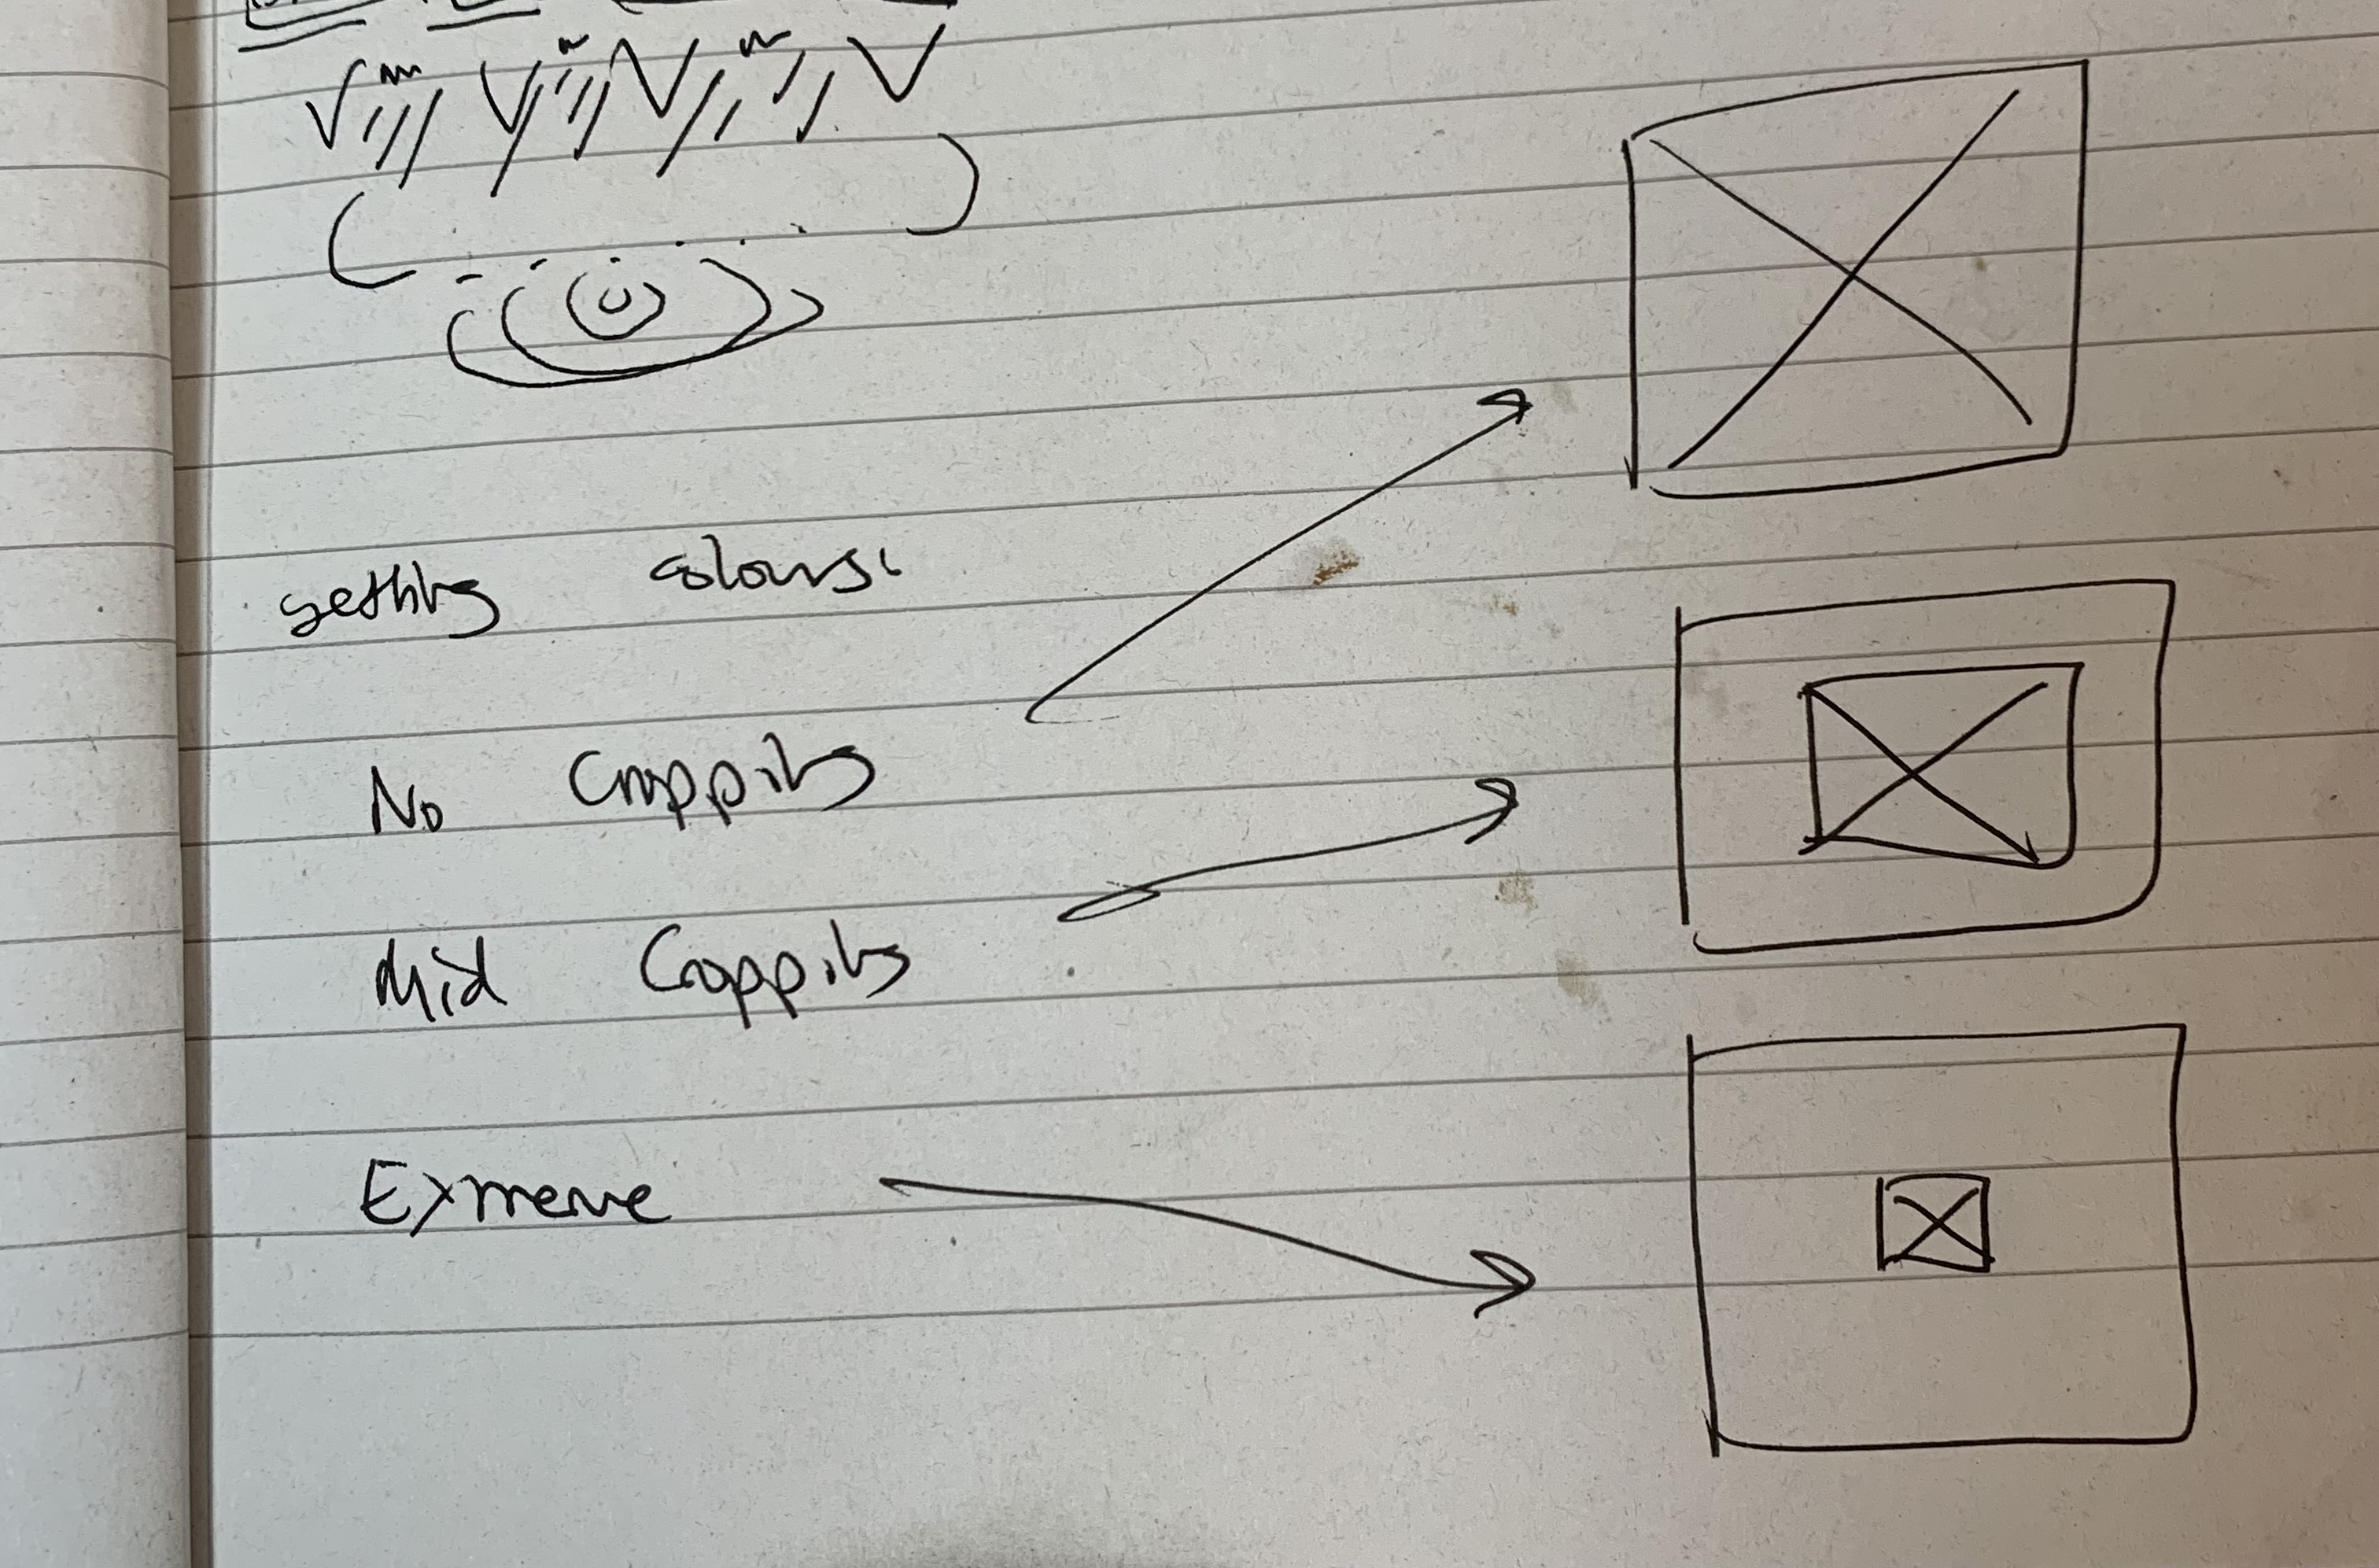 setting colours:
No Cropping
Mid Cropping
Extreme